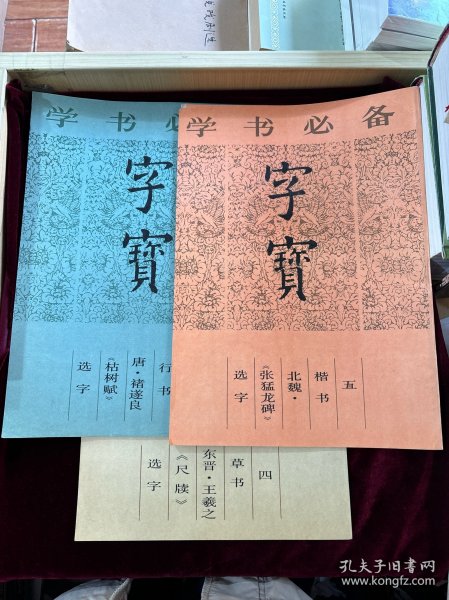 学书必备
字寳
五
楷书
北魏·
《张猛龙碑》
选字
学书必
字寳
行书
唐·褚遂良
《枯树赋》
选字
四
草书
东晋·王羲之
《尺牍》
选字
孔夫子旧书网
www.kongfz.com